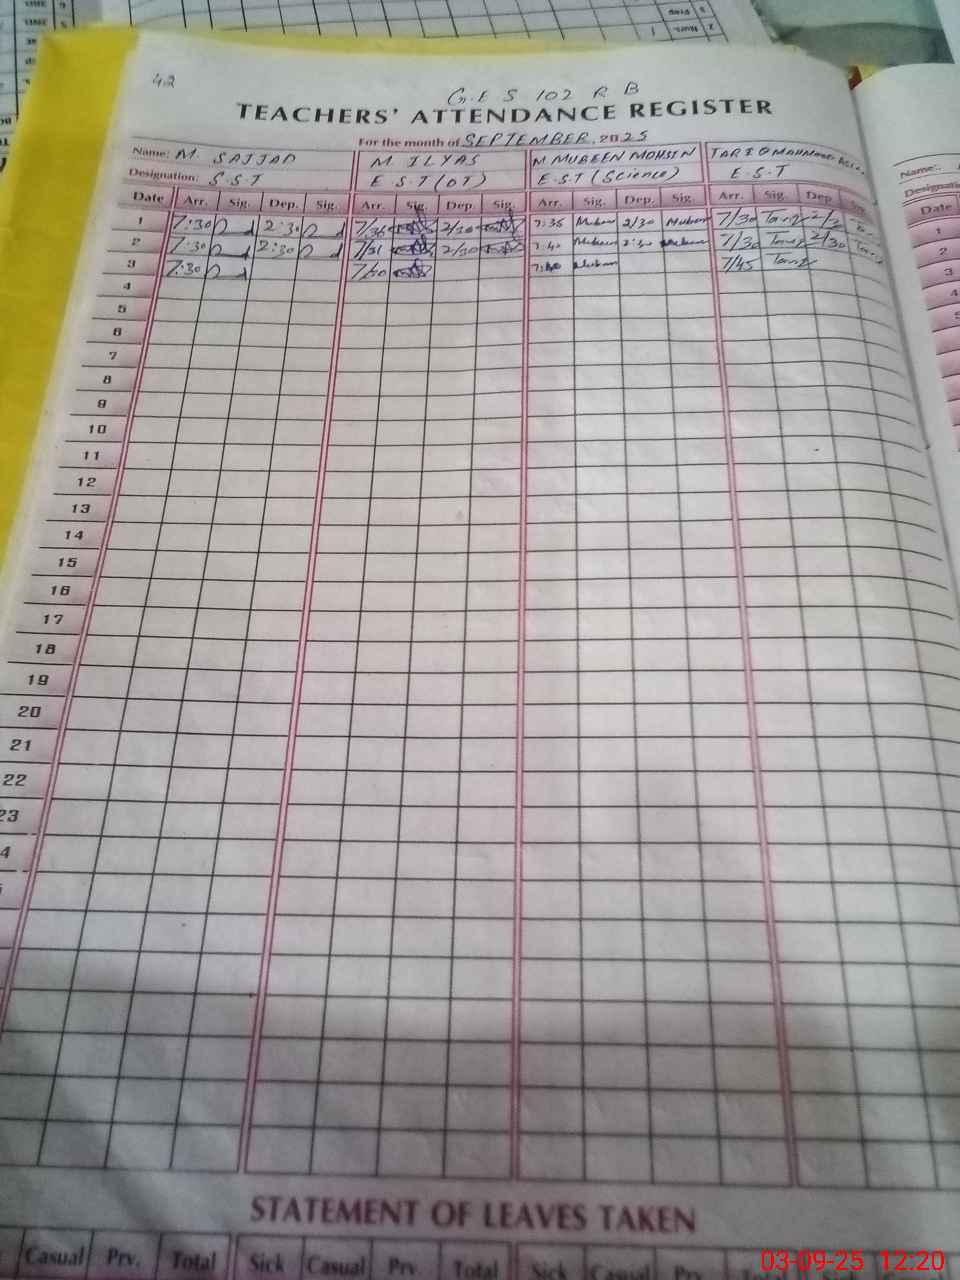 42
G.E S 102 R B
TEACHERS' ATTENDANCE REGISTER
For the month of SEPTEMBER, 2025
Name: M. SAJJAD M ILYAS M MUBEEN MOHSIN TARIQ MAHMOOD
Designation: S.S.T E.S.T (OT) E.S.T (Science) E.S.T
Date Arr. Sig. Dep. Sig. Arr. Sig. Dep. Sig. Arr. Sig. Dep. Sig. Arr. Sig. Dep Sig.
1 7:30 2:30 7/36 2/30 7:35 Mubeen 2/30 Mubeen 7/30 Tariq
2 7:30 2:30 7/31 2/30 7:40 Mubeen 2:30 Mubeen 7/30 Tariq 2/30
3 7:30 Mubeen 7/45 Tariq
4
5
6
7
8
9
10
11
12
13
14
15
16
17
18
19
20
21
22
23
4
STATEMENT OF LEAVES TAKEN
Casual Prv. Total Sick Casual Prv. Total Sick Casual Prv.
Name:
Date
1
2
3
4
03-09-25 12:20